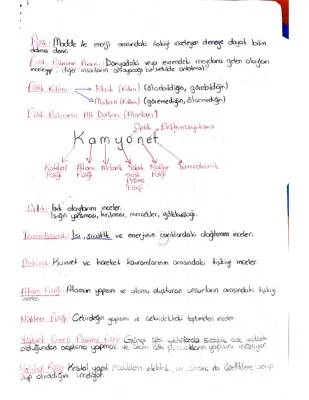 Fizik: Madde ile enerji arasındaki ilişkiyi inceleyen deneye dayalı bilim
dalına denir.
Fizik Biliminin Amacı: Dünyadaki veya evrendeki meydana gelen olayları
inceleyip, diğer insanların anlayacağı bir şekilde
Fizik Bilimi: Klasik (Kilim) (ölçebildiğin, görebildiğin)
Modern (Kilim) (göremediğin, ölçemediğin)
Fizik Biliminin Alt Dalları (Alanları)
Optik Elektromanyetizma
Kamyonet
Katıhal Fiziği Atom Fiziği Mekanik Yüksek Enerji Plazma Fiziği Nükleer Fiziği Termodinamik
Optik: Işık olaylarını inceler.
Işığın yansıması, kırılması, mercekler, gökkuşağı.
Termodinamik: Isı, sıcaklık ve enerjinin dağılımını inceler.
Mekanik: Kuvvet ve hareket kavramlarının arasındaki ilişkiyi inceler.
Atom Fiziği: Atomun yapısını ve atomu oluşturan unsurların arasındaki ilişkiyi
inceler.
Nükleer Fiziği: Çekirdeğin yapısını ve çekirdekteki inceler.
Yüksek Enerji Plazma Fiziği: Güneş gibi yıldızlarda sıcaklık çok yüksek
olduğundan yapmak ve yapısını inceliyor.
Katıhal Fiziği: Kristal yapılı maddelerin elektrik, ısı, özelliklere sahip
olup olmadığını inceliyor.